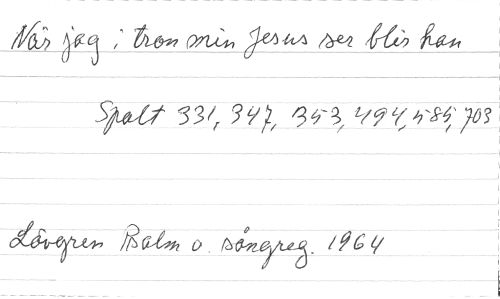 När jag i tron min Jesus ser blir han
Spalt 331, 347, 353, 494, 585, 703
Lövgren Psalm o. sångreg. 1964